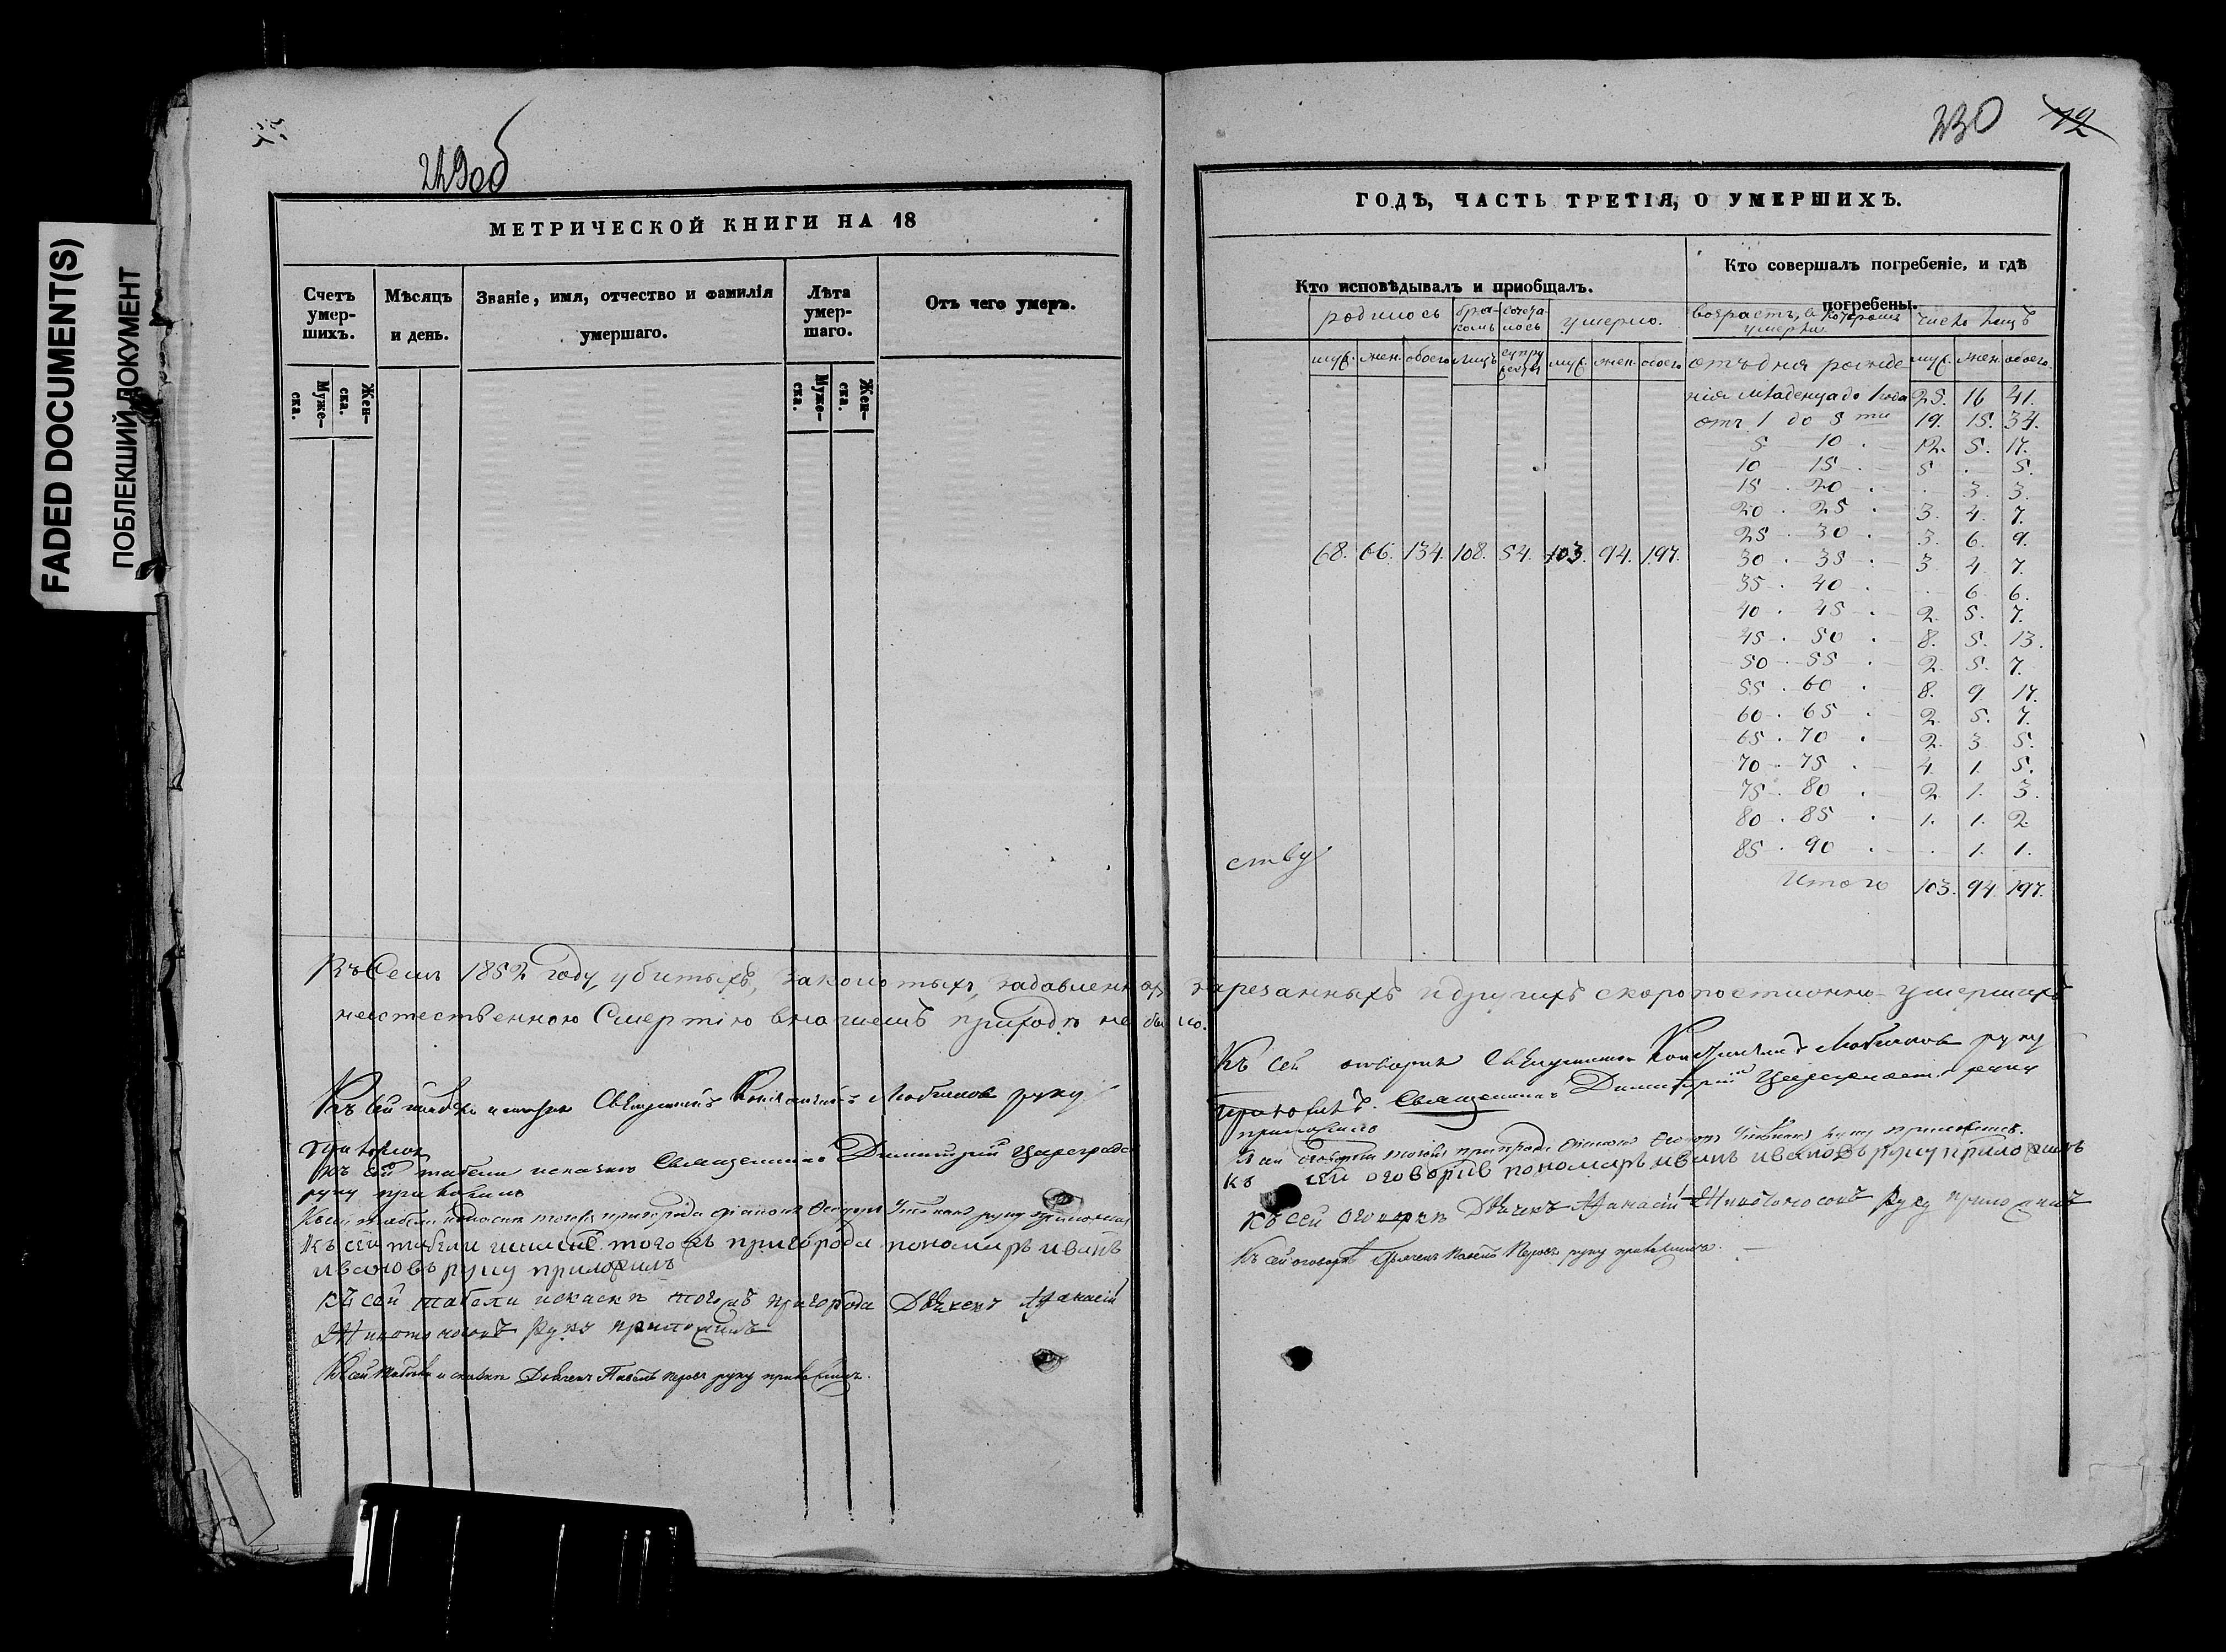 FADED DOCUMENT(S)
ПОБЛЕКШИЙ ДОКУМЕНТ
229об
МЕТРИЧЕСКОЙ КНИГИ НА 18
Счетъ умер-шихъ.
Мѣсяцъ и день.
Званіе, имя, отчество и фамилія умершаго.
Лѣта умер-шаго.
Отъ чего умеръ.
Муже-ска.
Жен-ска.
Муже-ска.
Жен-ска.
Въ семъ 1852 году убитыхъ, заколотыхъ, задавленныхъ
неестественною смертію въ нашемъ приходѣ не было.
Къ сей табели и Священникъ руку
приложилъ
Къ сей табели Священникъ Димитрій
руку приложилъ
Къ сей табели тогожъ пригорода руку приложилъ
Къ сей табели тогожъ пригорода пономарь иванъ
ивановъ руку приложилъ
къ сей табели тогожъ пригорода Дьячекъ Афанасій
руку приложилъ
Къ сей табели Дьячекъ Павелъ руку приложилъ.
230 12
ГОДЪ, ЧАСТЬ ТРЕТІЯ, О УМЕРШИХЪ.
Кто исповѣдывалъ и приобщалъ.
Кто совершалъ погребеніе, и гдѣ погребены.
родилось
умерло.
возрастъ, въ которомъ умерли
число лицъ
муж. жен. обоего лицъ муж. жен. обоего
отъ дня рожде муж. жен. обоего.
нія младенца до 1 года 25. 16 41.
отъ 1 до 5ти 19. 15. 34.
5 10 12. 5. 17.
10 15 5 . 5.
15 20 . 3. 3.
20 25 3. 4. 7.
25 30 3. 6. 9.
68. 66. 134. 108. 54. 103. 94. 197.
30 35 3 4 7.
35 40 . 6 6.
40 45 2. 5. 7.
45 50 8. 5. 13.
50 55 2. 5. 7.
55 60 8. 9 17.
60 65 2. 5. 7.
65 70 2. 3 5.
70 75 4. 1. 5.
75 80 2. 1. 3.
80 85 1. 1. 2.
85 90 . 1. 1.
ству
Итого 103. 94. 197.
зарезанныхъ и другихъ скоропостижно умершихъ
Къ сей оговорке Священникъ руку
приложилъ. Священникъ Димитрій руку
приложилъ
тогожъ пригорода руку приложилъ.
къ сей оговорке пономарь иванъ ивановъ руку приложилъ
Къ сей оговорке Дьячекъ Афанасій руку приложилъ
Къ сей оговорке Дьячекъ Павелъ руку приложилъ.